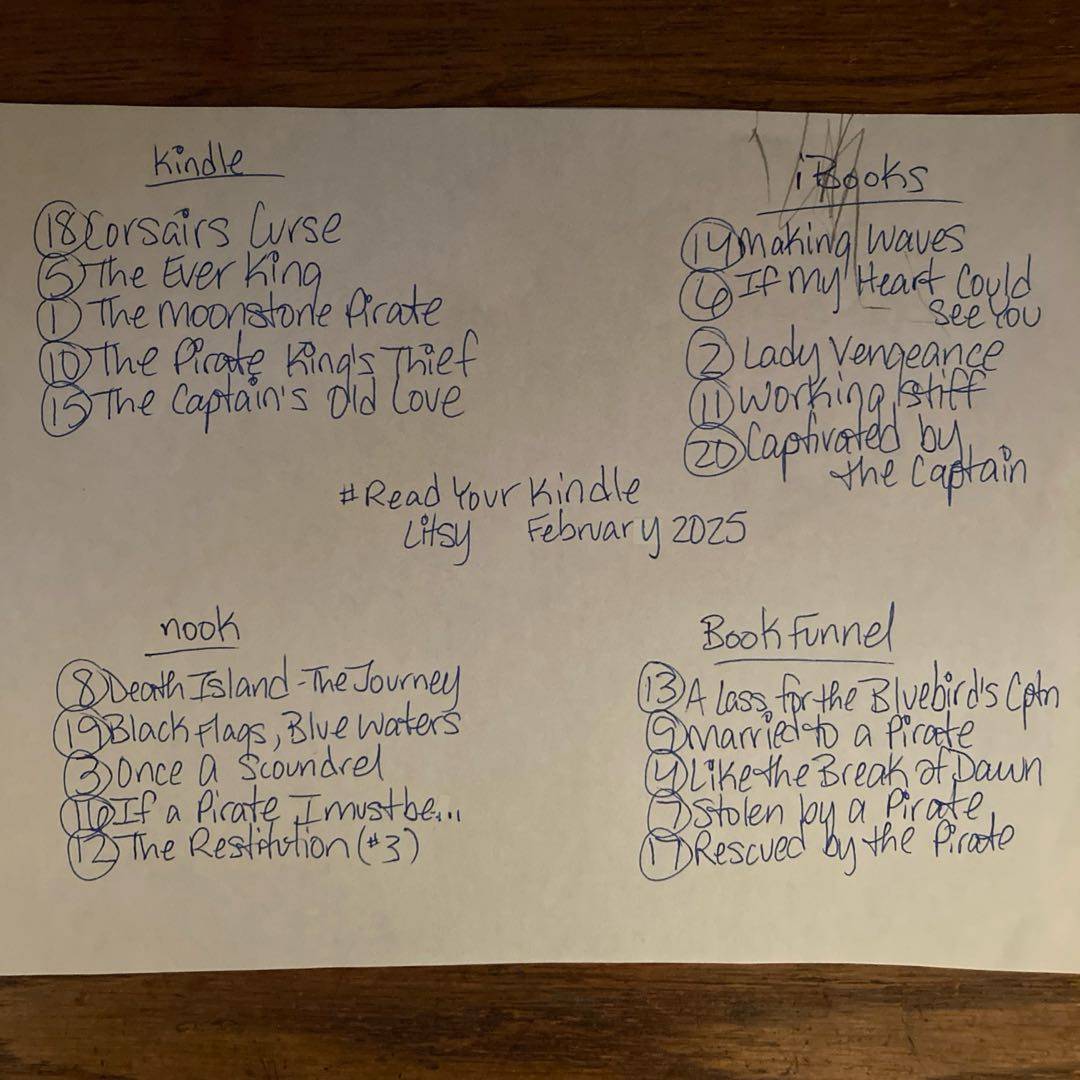 Kindle
18 Corsairs Curse
5 The Ever King
1 The Moonstone Pirate
10 The Pirate King's Thief
15 The Captain's Old Love
iBooks
14 Making Waves
6 If My Heart Could
See You
2 Lady Vengeance
11 Working Stiff
20 Captivated by
the Captain
#Read Your Kindle
Litsy February 2025
nook
8 Death Island - The Journey
19 Black Flags, Blue Waters
3 Once A Scoundrel
16 If a Pirate I must be...
12 The Restitution (#3)
Book Funnel
13 A Lass for the Bluebird's Cptn
9 Married to a Pirate
4 Like the Break of Dawn
7 Stolen by a Pirate
17 Rescued by the Pirate